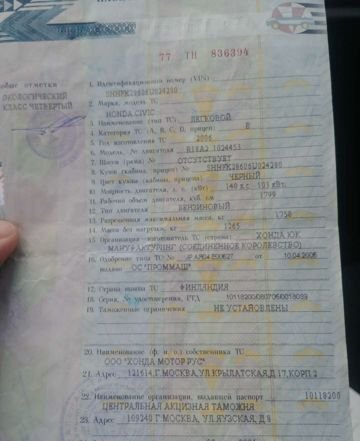 77 ТН 836394
ЭКОЛОГИЧЕСКИЙ
КЛАСС ЧЕТВЕРТЫЙ
1. Идентификационный номер (VIN)
2. Марка, модель ТС
HONDA CIVIC
3. Наименование (тип ТС) ЛЕГКОВОЙ
4. Категория ТС (А, В, С, D, прицеп) B
5. Год изготовления ТС 2006
6. Модель, № двигателя R18A2 1024453
7. Шасси (рама) № ОТСУТСТВУЕТ
8. Кузов (кабина, прицеп) №
9. Цвет кузова (кабины, прицепа) ЧЕРНЫЙ
10. Мощность двигателя, л. с. (кВт) 140 л.с. 103 кВт.
11. Рабочий объем двигателя, куб. см 1799
12. Тип двигателя БЕНЗИНОВЫЙ
13. Разрешенная максимальная масса, кг 1750
14. Масса без нагрузки, кг 1265
15. Организация - изготовитель ТС (страна) ХОНДА ЮК
МАНУФАКТУРИНГ (СОЕДИНЕННОЕ КОРОЛЕВСТВО)
16. Одобрение типа ТС № от 10.04.2006
выдано ОС "ПРОММАШ"
17. Страна вывоза ТС ФИНЛЯНДИЯ
18. Серия, № удостоверения, ГТД
19. Таможенные ограничения НЕ УСТАНОВЛЕНЫ
20. Наименование (ф. и. о.) собственника ТС
ООО "ХОНДА МОТОР РУС"
21. Адрес 121614, Г. МОСКВА, УЛ. КРЫЛАТСКАЯ, Д.17, КОРП.2
22. Наименование организации, выдавшей паспорт 10118200
ЦЕНТРАЛЬНАЯ АКЦИЗНАЯ ТАМОЖНЯ
23. Адрес 109240 Г. МОСКВА, УЛ. ЯУЗСКАЯ, Д.8